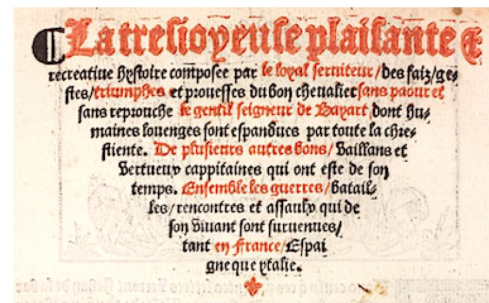 La tresioyeuse plaisante &
recreatiue hystoire composee par le loyal seruiteur/des faiz/ge-
stes/triumphes et prouesses du bon cheualier sans paour et
sans reprouche le gentil seigneur de Bayart dont hu-
maines louenges sont espandues par toute la chre-
stiente. De plusieurs autres bons/Vaillans et
Vertueux cappitaines qui ont este de son
temps. Ensemble les guerres/batail-
les/rencontres et assaulx qui de
son viuant sont suruenues/
tant en france/Espai
gne que ytalie.